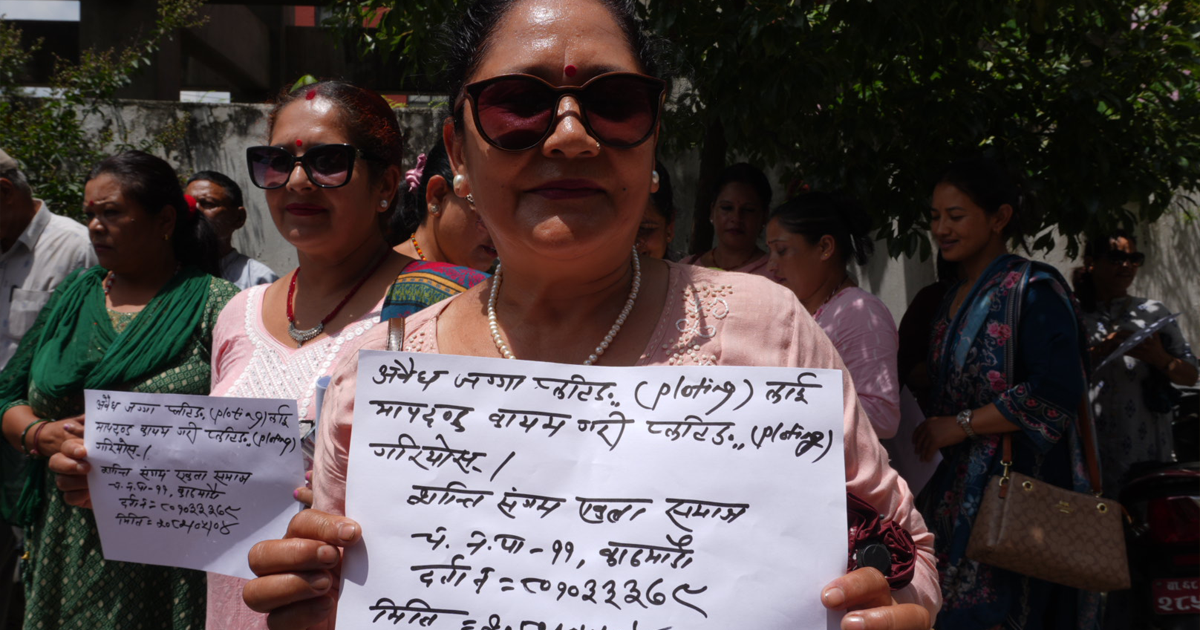 अबैध जग्गा प्लटिङ.. (ploting) लाई
मापदण्ड कायम गरी प्लटिङ.. (ploting)
गरियोस् /
शान्ति संगम एकता समाज
चं. न. पा - ११, काठमाडौं
दर्ता नं = ८०१०३३३६८
मिति =
अबैध जग्गा प्लटिङ.. (ploting) लाई
मापदण्ड कायम गरी प्लटिङ.. (ploting)
गरियोस् /
शान्ति संगम एकता समाज
चं. न. पा - ११, काठमाडौं
दर्ता नं = ८०१०३३३६८
मिति =